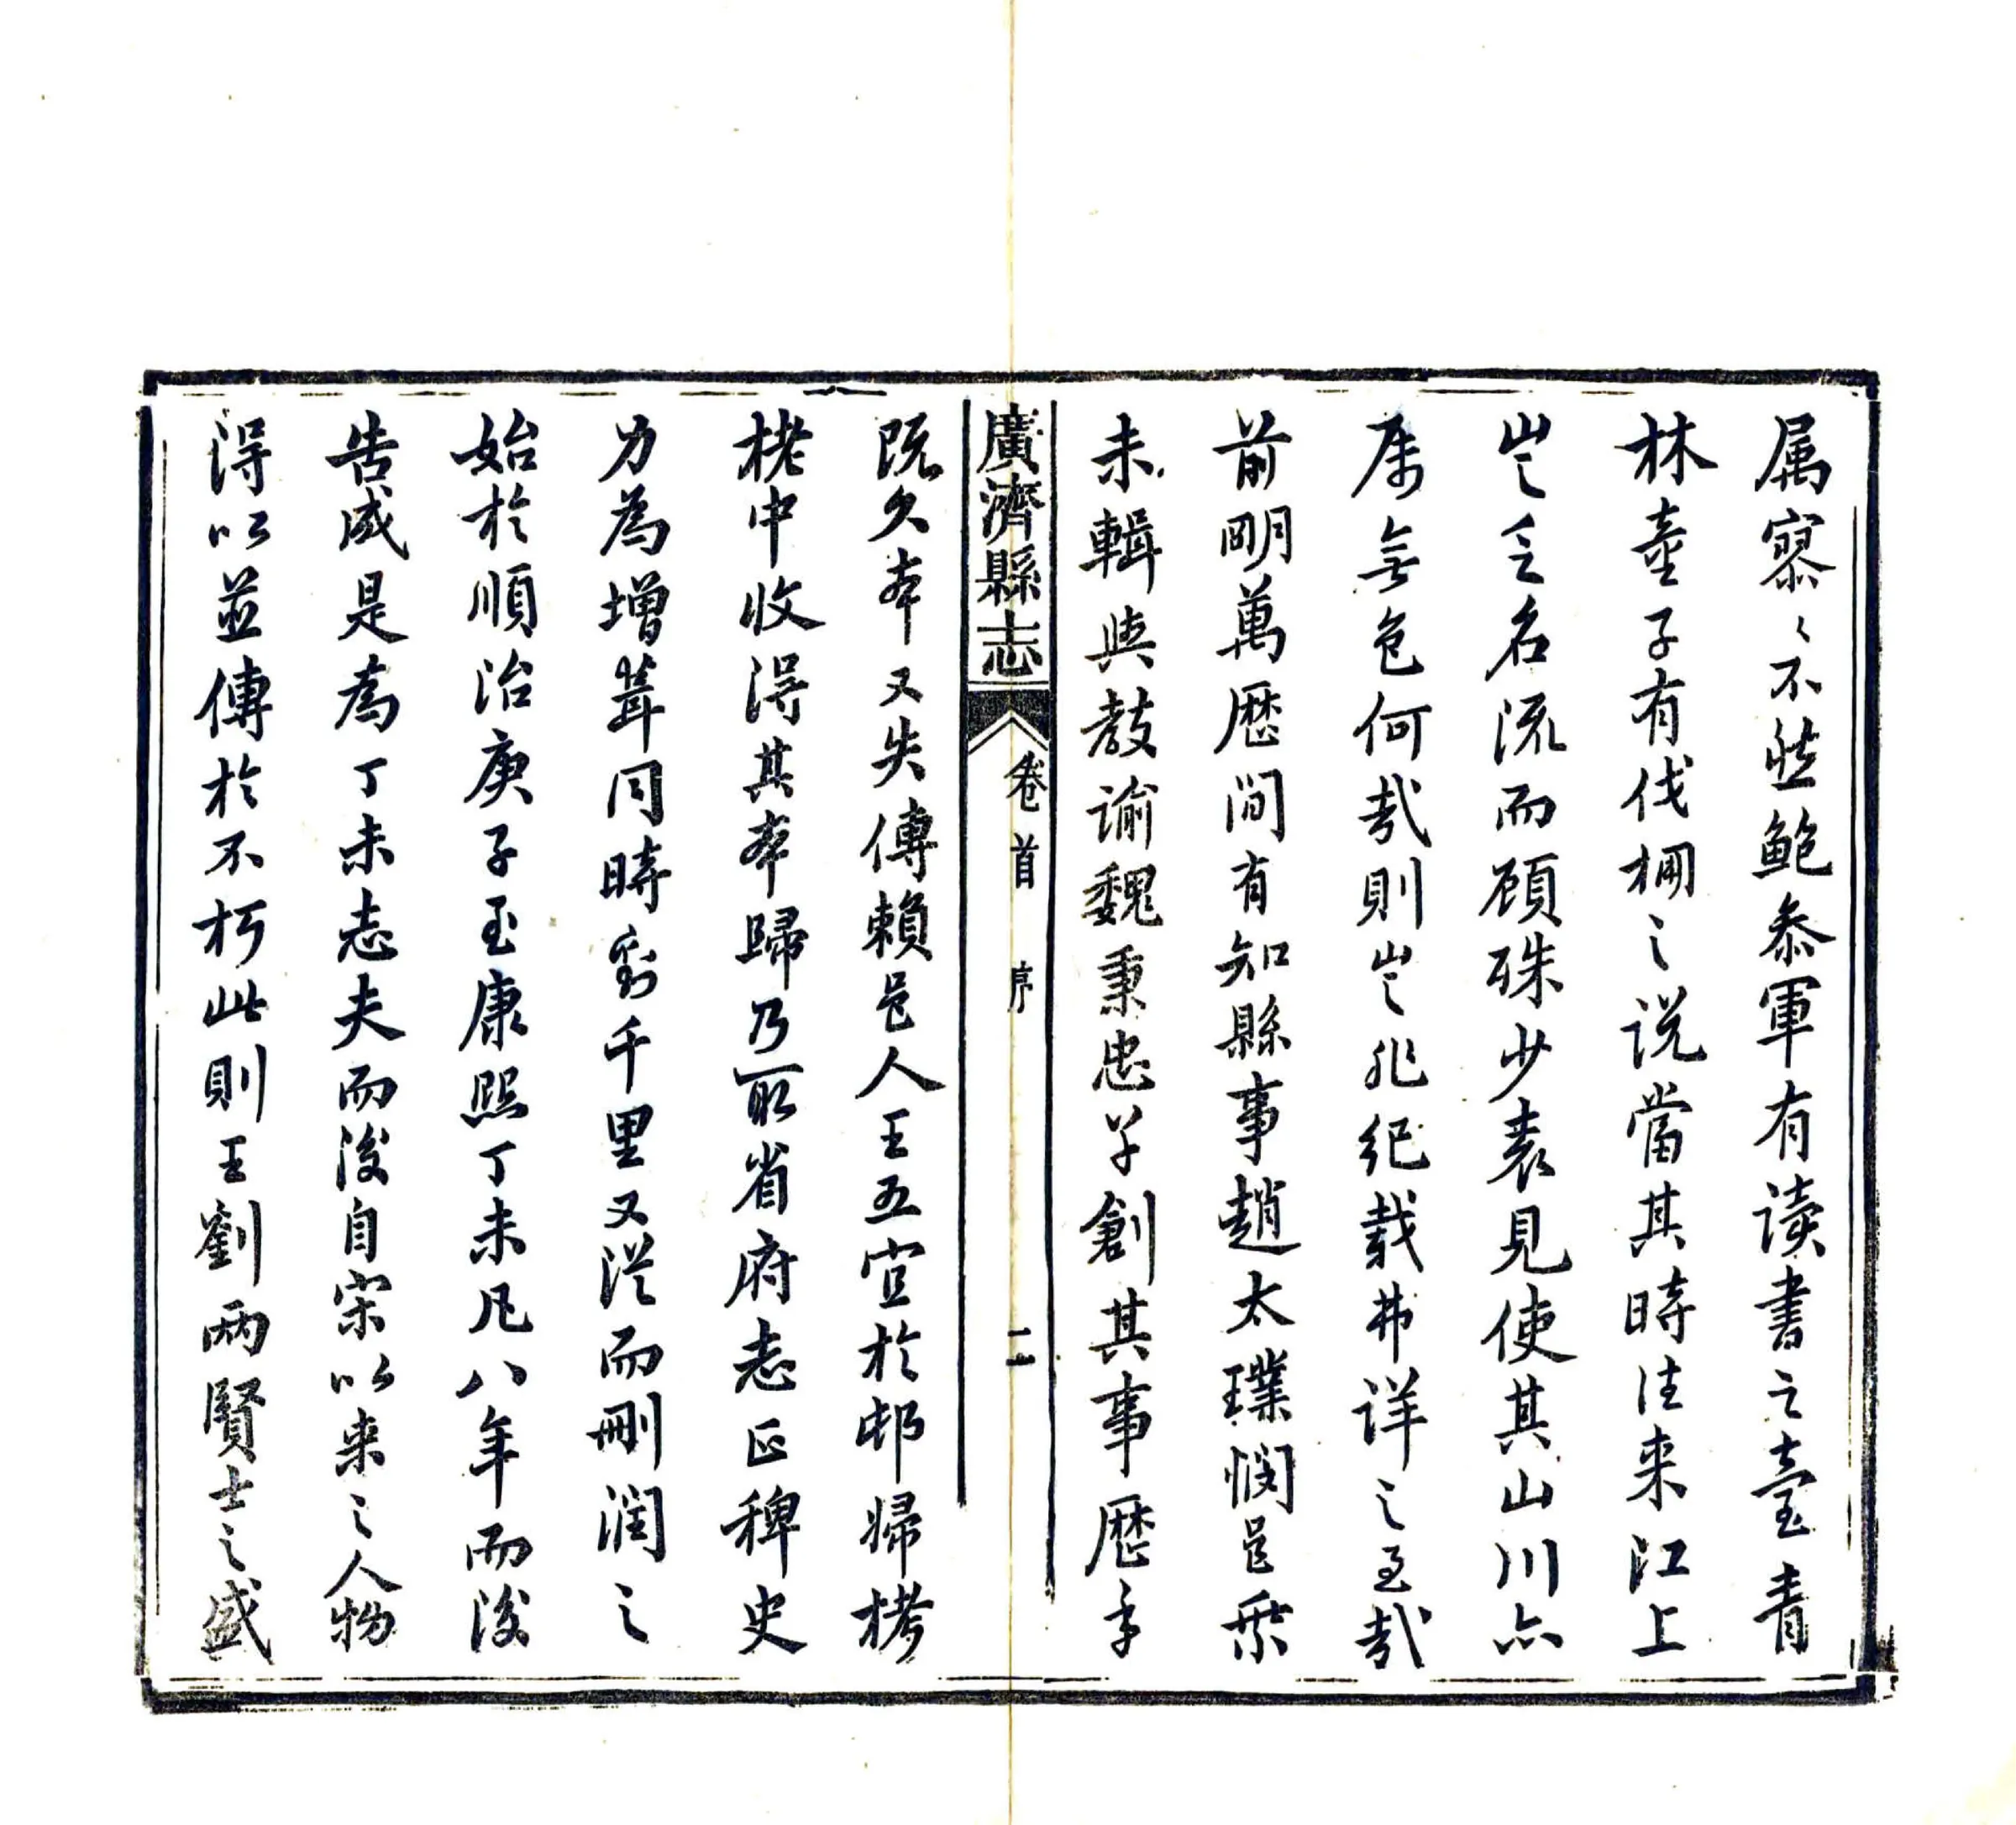 属寥〻不然鮑参軍有读書之臺青
林童子有伐棚之说當其時往来江上
豈乏名流而顾殊少表見使其山川亦
属無色何哉則豈非纪载弗详之至哉
前明萬歷間有知縣事趙太璞憫邑乘
未輯與教谕魏秉忠
創其事歷年
廣濟縣志
卷首
序
二
既久本又失傳賴邑人王五宣於邨歸
栳中收得其本歸乃取省府志正稗史
力為增葺同時劉千里又從而刪润之
始於順治庚子至康熙丁未凡八年而後
告成是為丁未志夫而後自宋以来之人物
得以並傳於不朽此則王劉兩賢士之盛